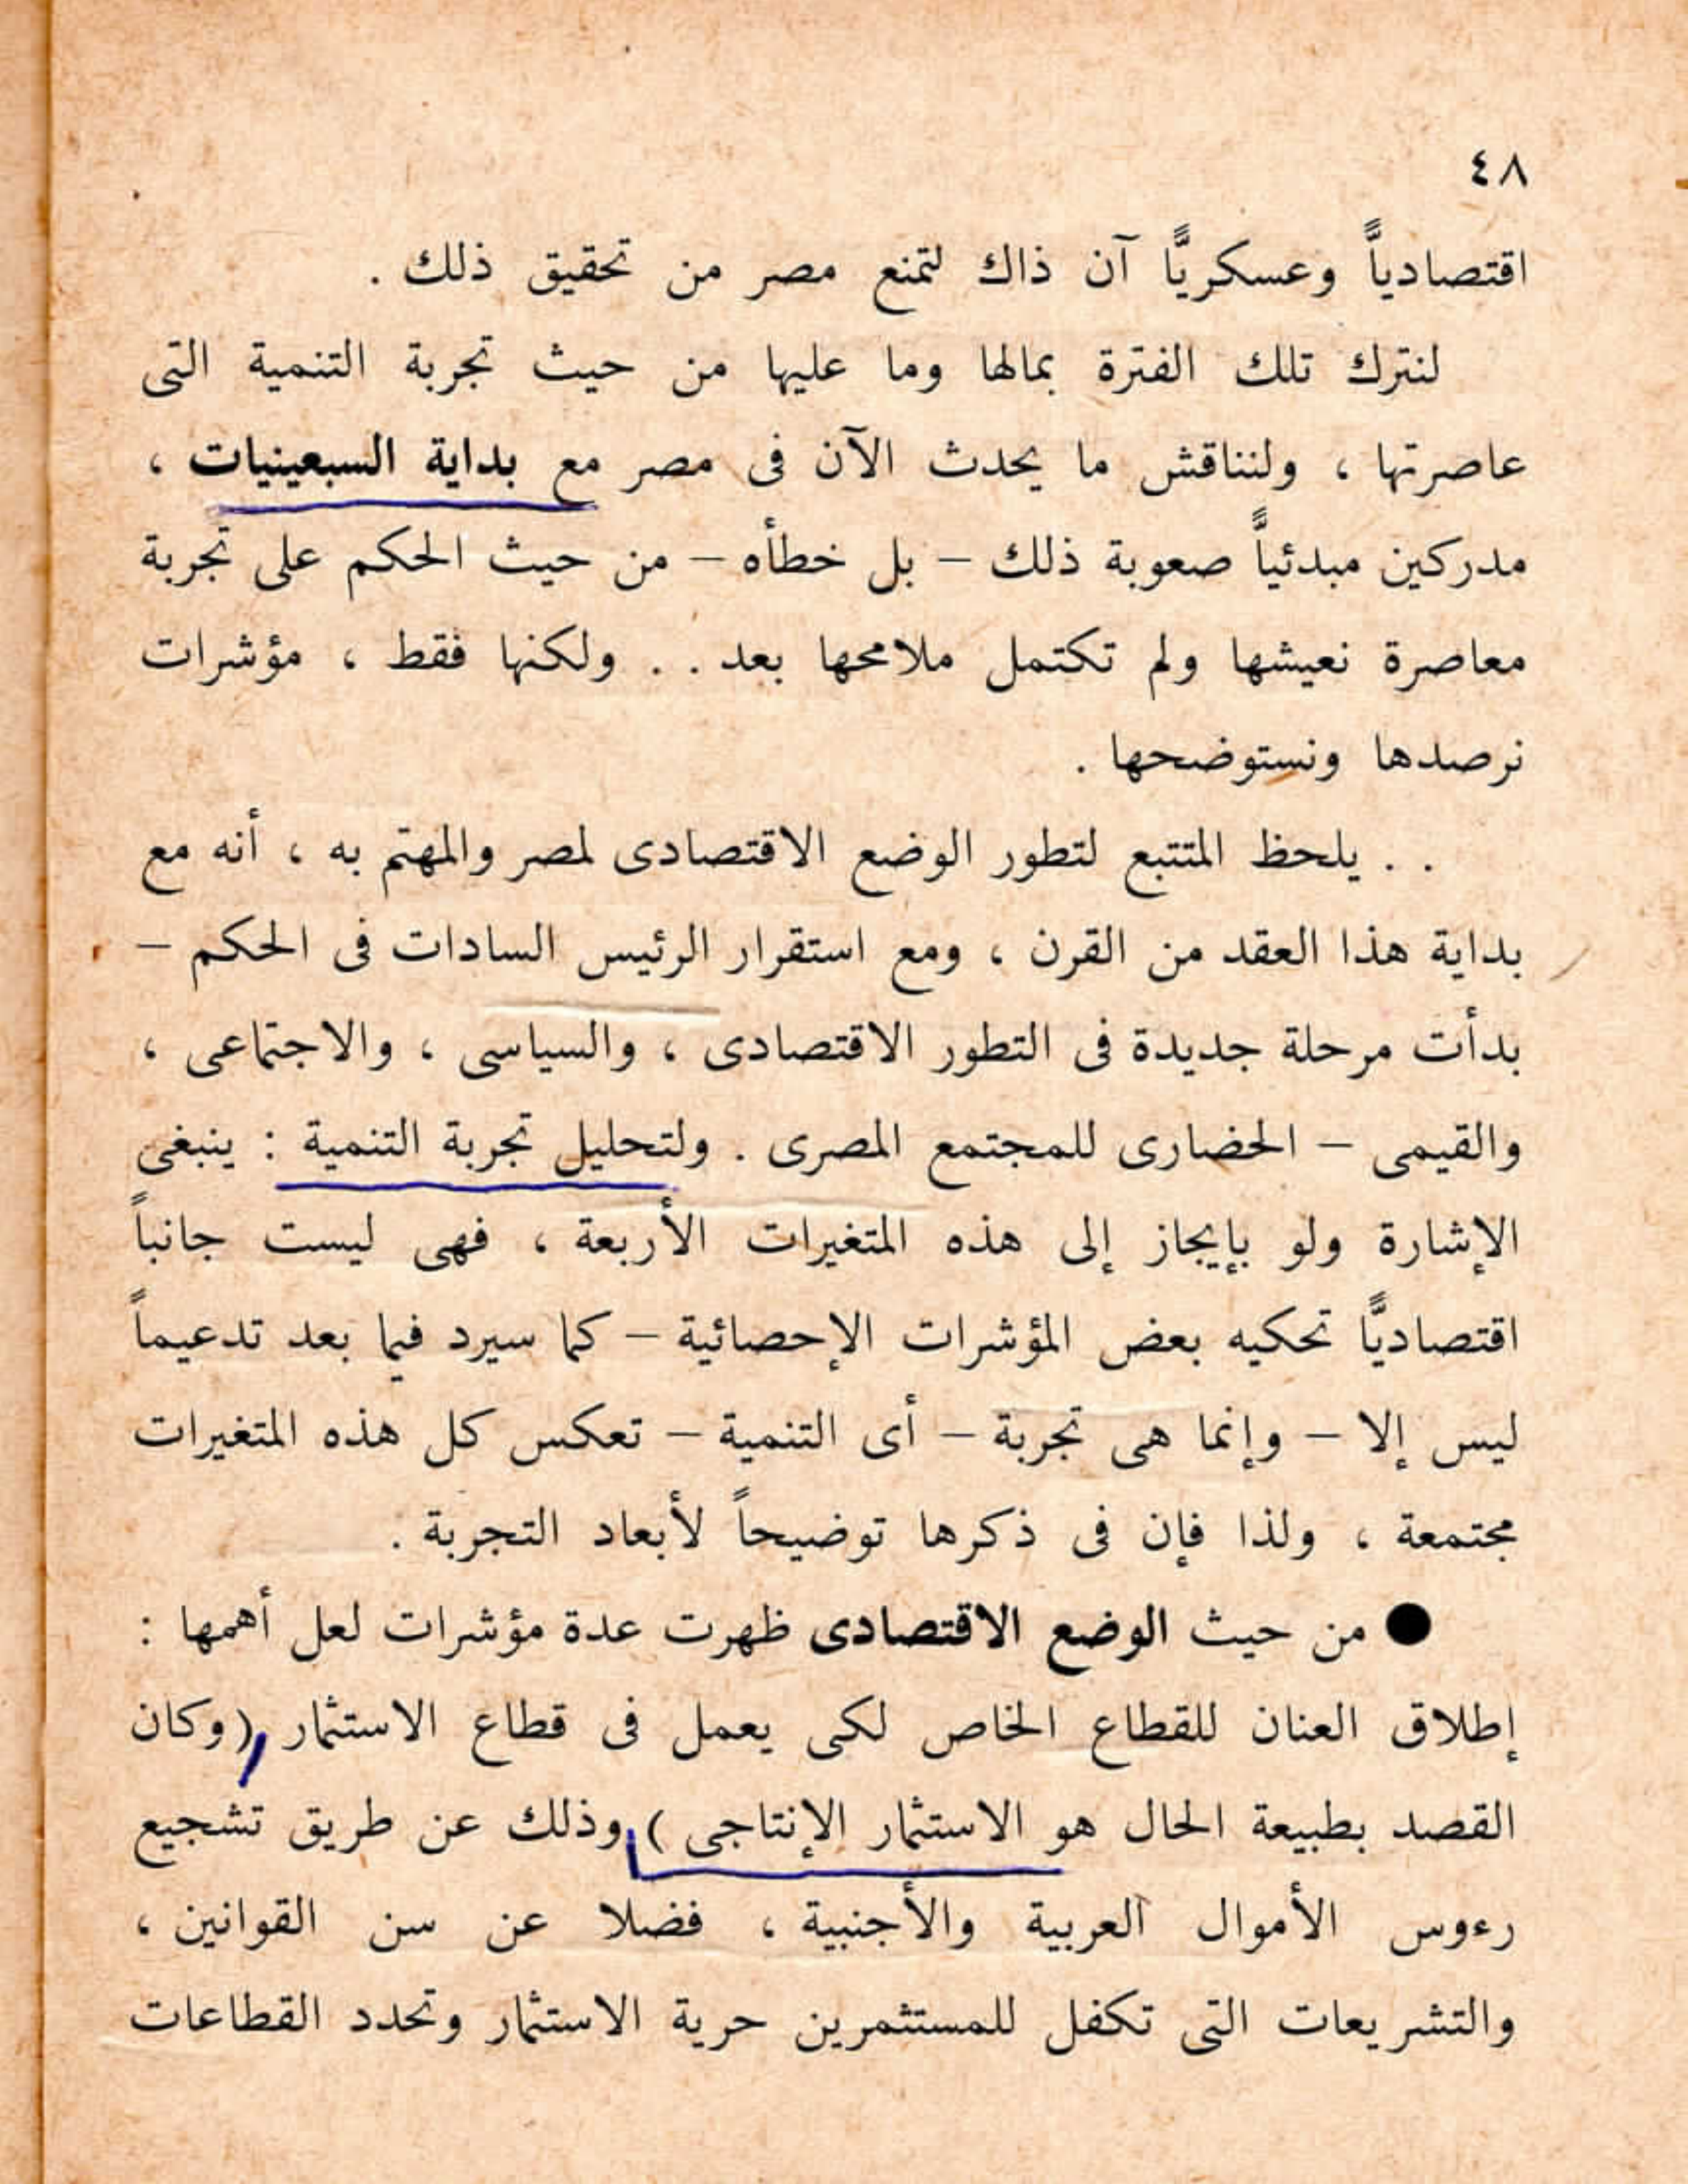 ٤٨
اقتصادياًّ وعسكريًّا آن ذاك لتمنع مصر من تحقيق ذلك .
لنترك تلك الفترة بمالها وما عليها من حيث تجربة التنمية التى
عاصرتها ، ولنناقش ما يحدث الآن فى مصر مع بداية السبعينيات ،
مدركين مبدئياًّ صعوبة ذلك – بل خطأه – من حيث الحكم على تجربة
معاصرة نعيشها ولم تكتمل ملامحها بعد . . ولكنها فقط ، مؤشرات
نرصدها ونستوضحها .
. . يلحظ المتتبع لتطور الوضع الاقتصادى لمصر والمهتم به ، أنه مع
بداية هذا العقد من القرن ، ومع استقرار الرئيس السادات فى الحكم –
بدأت مرحلة جديدة فى التطور الاقتصادى ، والسياسى ، والاجتماعى ،
والقيمى – الحضارى للمجتمع المصرى . ولتحليل تجربة التنمية : ينبغى
الإشارة ولو بإيجاز إلى هذه المتغيرات الأربعة ، فهى ليست جانباً
اقتصاديًّا تحكيه بعض المؤشرات الإحصائية – كما سيرد فيما بعد تدعيماً
ليس إلا – وإنما هى تجربة – أى التنمية – تعكس كل هذه المتغيرات
مجتمعة ، ولذا فإن فى ذكرها توضيحاً لأبعاد التجربة .
● من حيث الوضع الاقتصادى ظهرت عدة مؤشرات لعل أهمها :
إطلاق العنان للقطاع الخاص لكى يعمل فى قطاع الاستثمار (وكان
القصد بطبيعة الحال هو الاستثمار الإنتاجى ) وذلك عن طريق تشجيع
رءوس الأموال العربية والأجنبية ، فضلا عن سن القوانين ،
والتشريعات التى تكفل للمستثمرين حرية الاستثمار وتحدد القطاعات